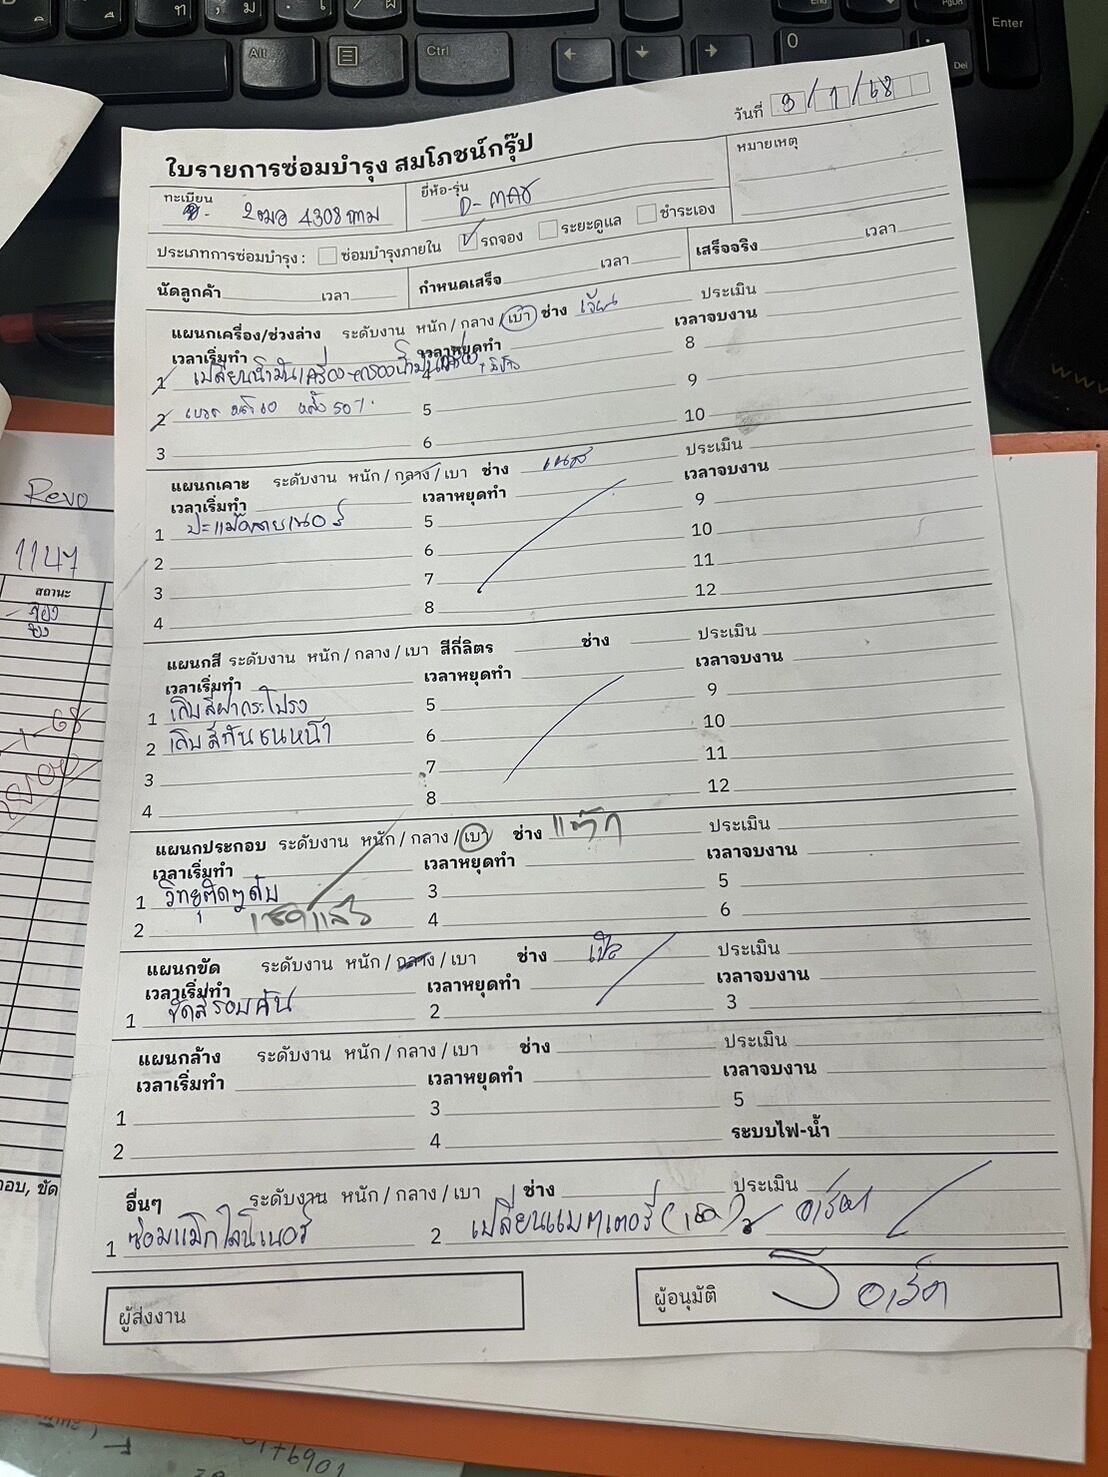 วันที่ 9/1/68
ใบรายการซ่อมบำรุง สมโภชน์กรุ๊ป
หมายเหตุ
ทะเบียน 2ฒอ 4308 กทม
ยี่ห้อ-รุ่น D-MAX
ประเภทการซ่อมบำรุง : ซ่อมบำรุงภายใน ✓ รถจอง ระยะดูแล ชำระเอง
นัดลูกค้า เวลา กำหนดเสร็จ เวลา เสร็จจริง เวลา
แผนกเครื่อง/ช่วงล่าง ระดับงาน หนัก / กลาง / เบา ช่าง ประเมิน
เวลาเริ่มทำ เวลาหยุดทำ เวลาจบงาน
1 เปลี่ยนน้ำมันเครื่อง-กรองน้ำมันเครื่อง 4 8
2 เบรค หน้า 60 หลัง 50%. 5 9
3 6 10
แผนกเคาะ ระดับงาน หนัก / กลาง / เบา ช่าง ประเมิน
เวลาเริ่มทำ เวลาหยุดทำ เวลาจบงาน
1 ปะแม็คลายเนอร์ 5 9
2 6 10
3 7 11
4 8 12
แผนกสี ระดับงาน หนัก / กลาง / เบา สีกี่ลิตร ช่าง ประเมิน
เวลาเริ่มทำ เวลาหยุดทำ เวลาจบงาน
1 เก็บสีฝากระโปรง 5 9
2 เก็บสีกันชนหน้า 6 10
3 7 11
4 8 12
แผนกประกอบ ระดับงาน หนัก / กลาง / เบา ช่าง ประเมิน
เวลาเริ่มทำ เวลาหยุดทำ เวลาจบงาน
1 วิทยุติดๆดับ 3 5
2 เช็คแล้ว 4 6
แผนกขัด ระดับงาน หนัก / กลาง / เบา ช่าง เป้ ประเมิน
เวลาเริ่มทำ เวลาหยุดทำ เวลาจบงาน
1 ขัดสีรอบคัน 2 3
แผนกล้าง ระดับงาน หนัก / กลาง / เบา ช่าง ประเมิน
เวลาเริ่มทำ เวลาหยุดทำ เวลาจบงาน
1 3 5
2 4 ระบบไฟ-น้ำ
อื่นๆ ระดับงาน หนัก / กลาง / เบา ช่าง ประเมิน
1 ซ่อมแม็กไลน์เนอร์ 2 เปลี่ยนแบตเตอรี่ (เช็ค)
ผู้ส่งงาน
ผู้อนุมัติ
Revo
1147
สถานะ
จอง
Alt
Ctrl
Enter
0
Del